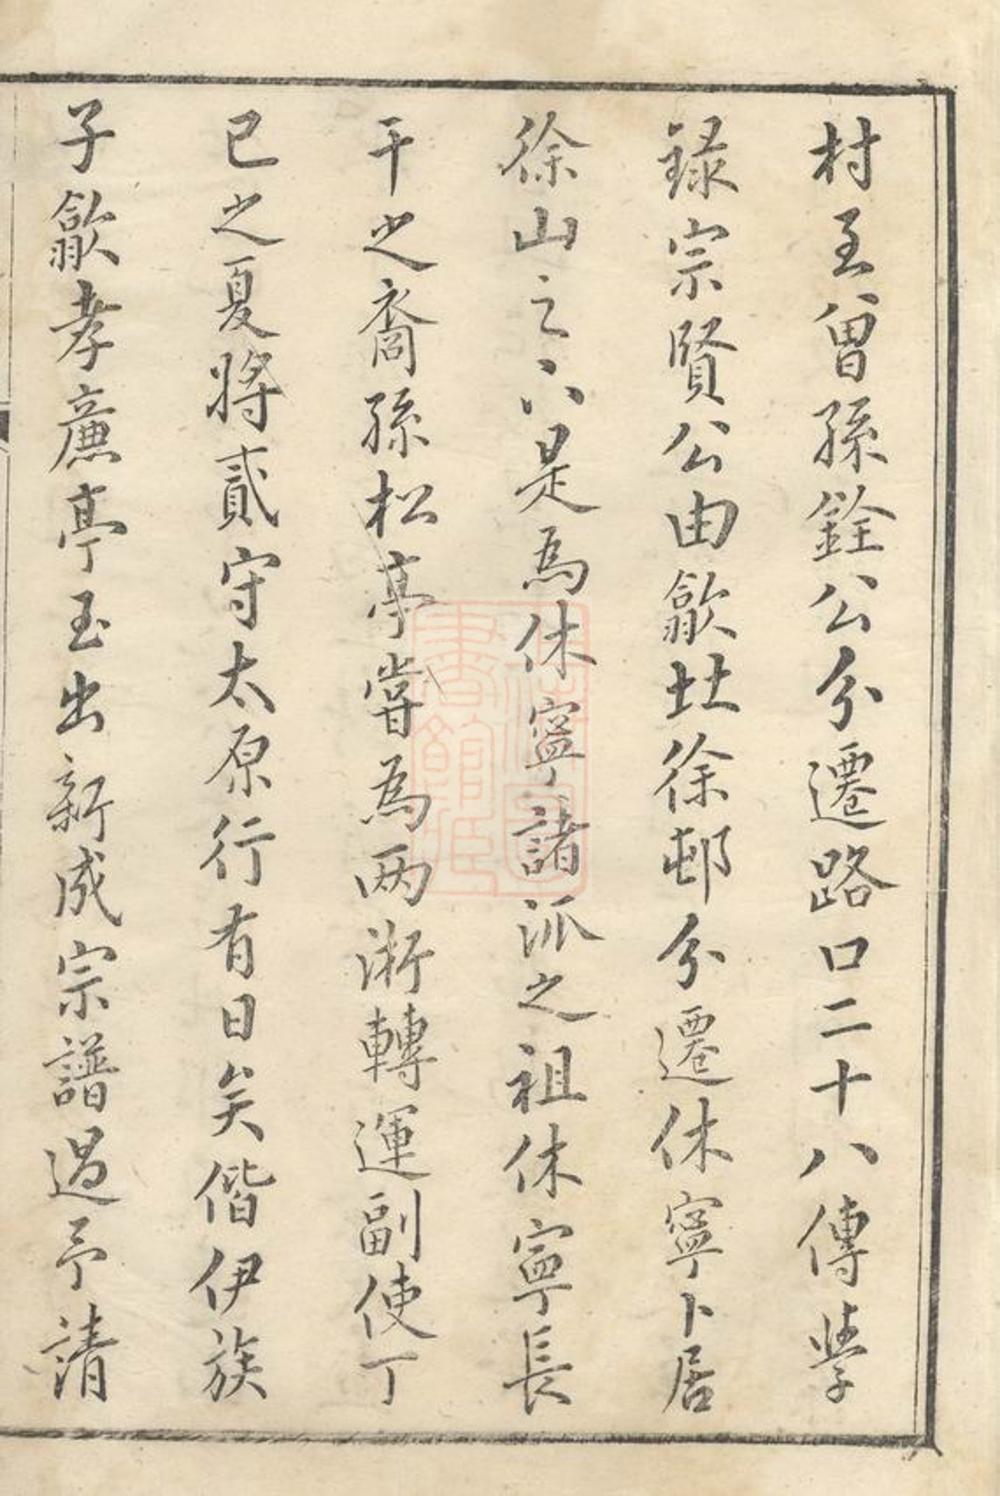 村至曾孫銓公分遷路口二十八傳學
録宗賢公由歙北徐邨分遷休寧卜居
徐山之下是為休寧諸派之祖休寧長
干之裔孫松亭嘗為兩淅轉運副使丁
巳之夏將貳守太原行有日矣偕伊族
子歙孝廉亭玉出新成宗譜過予請